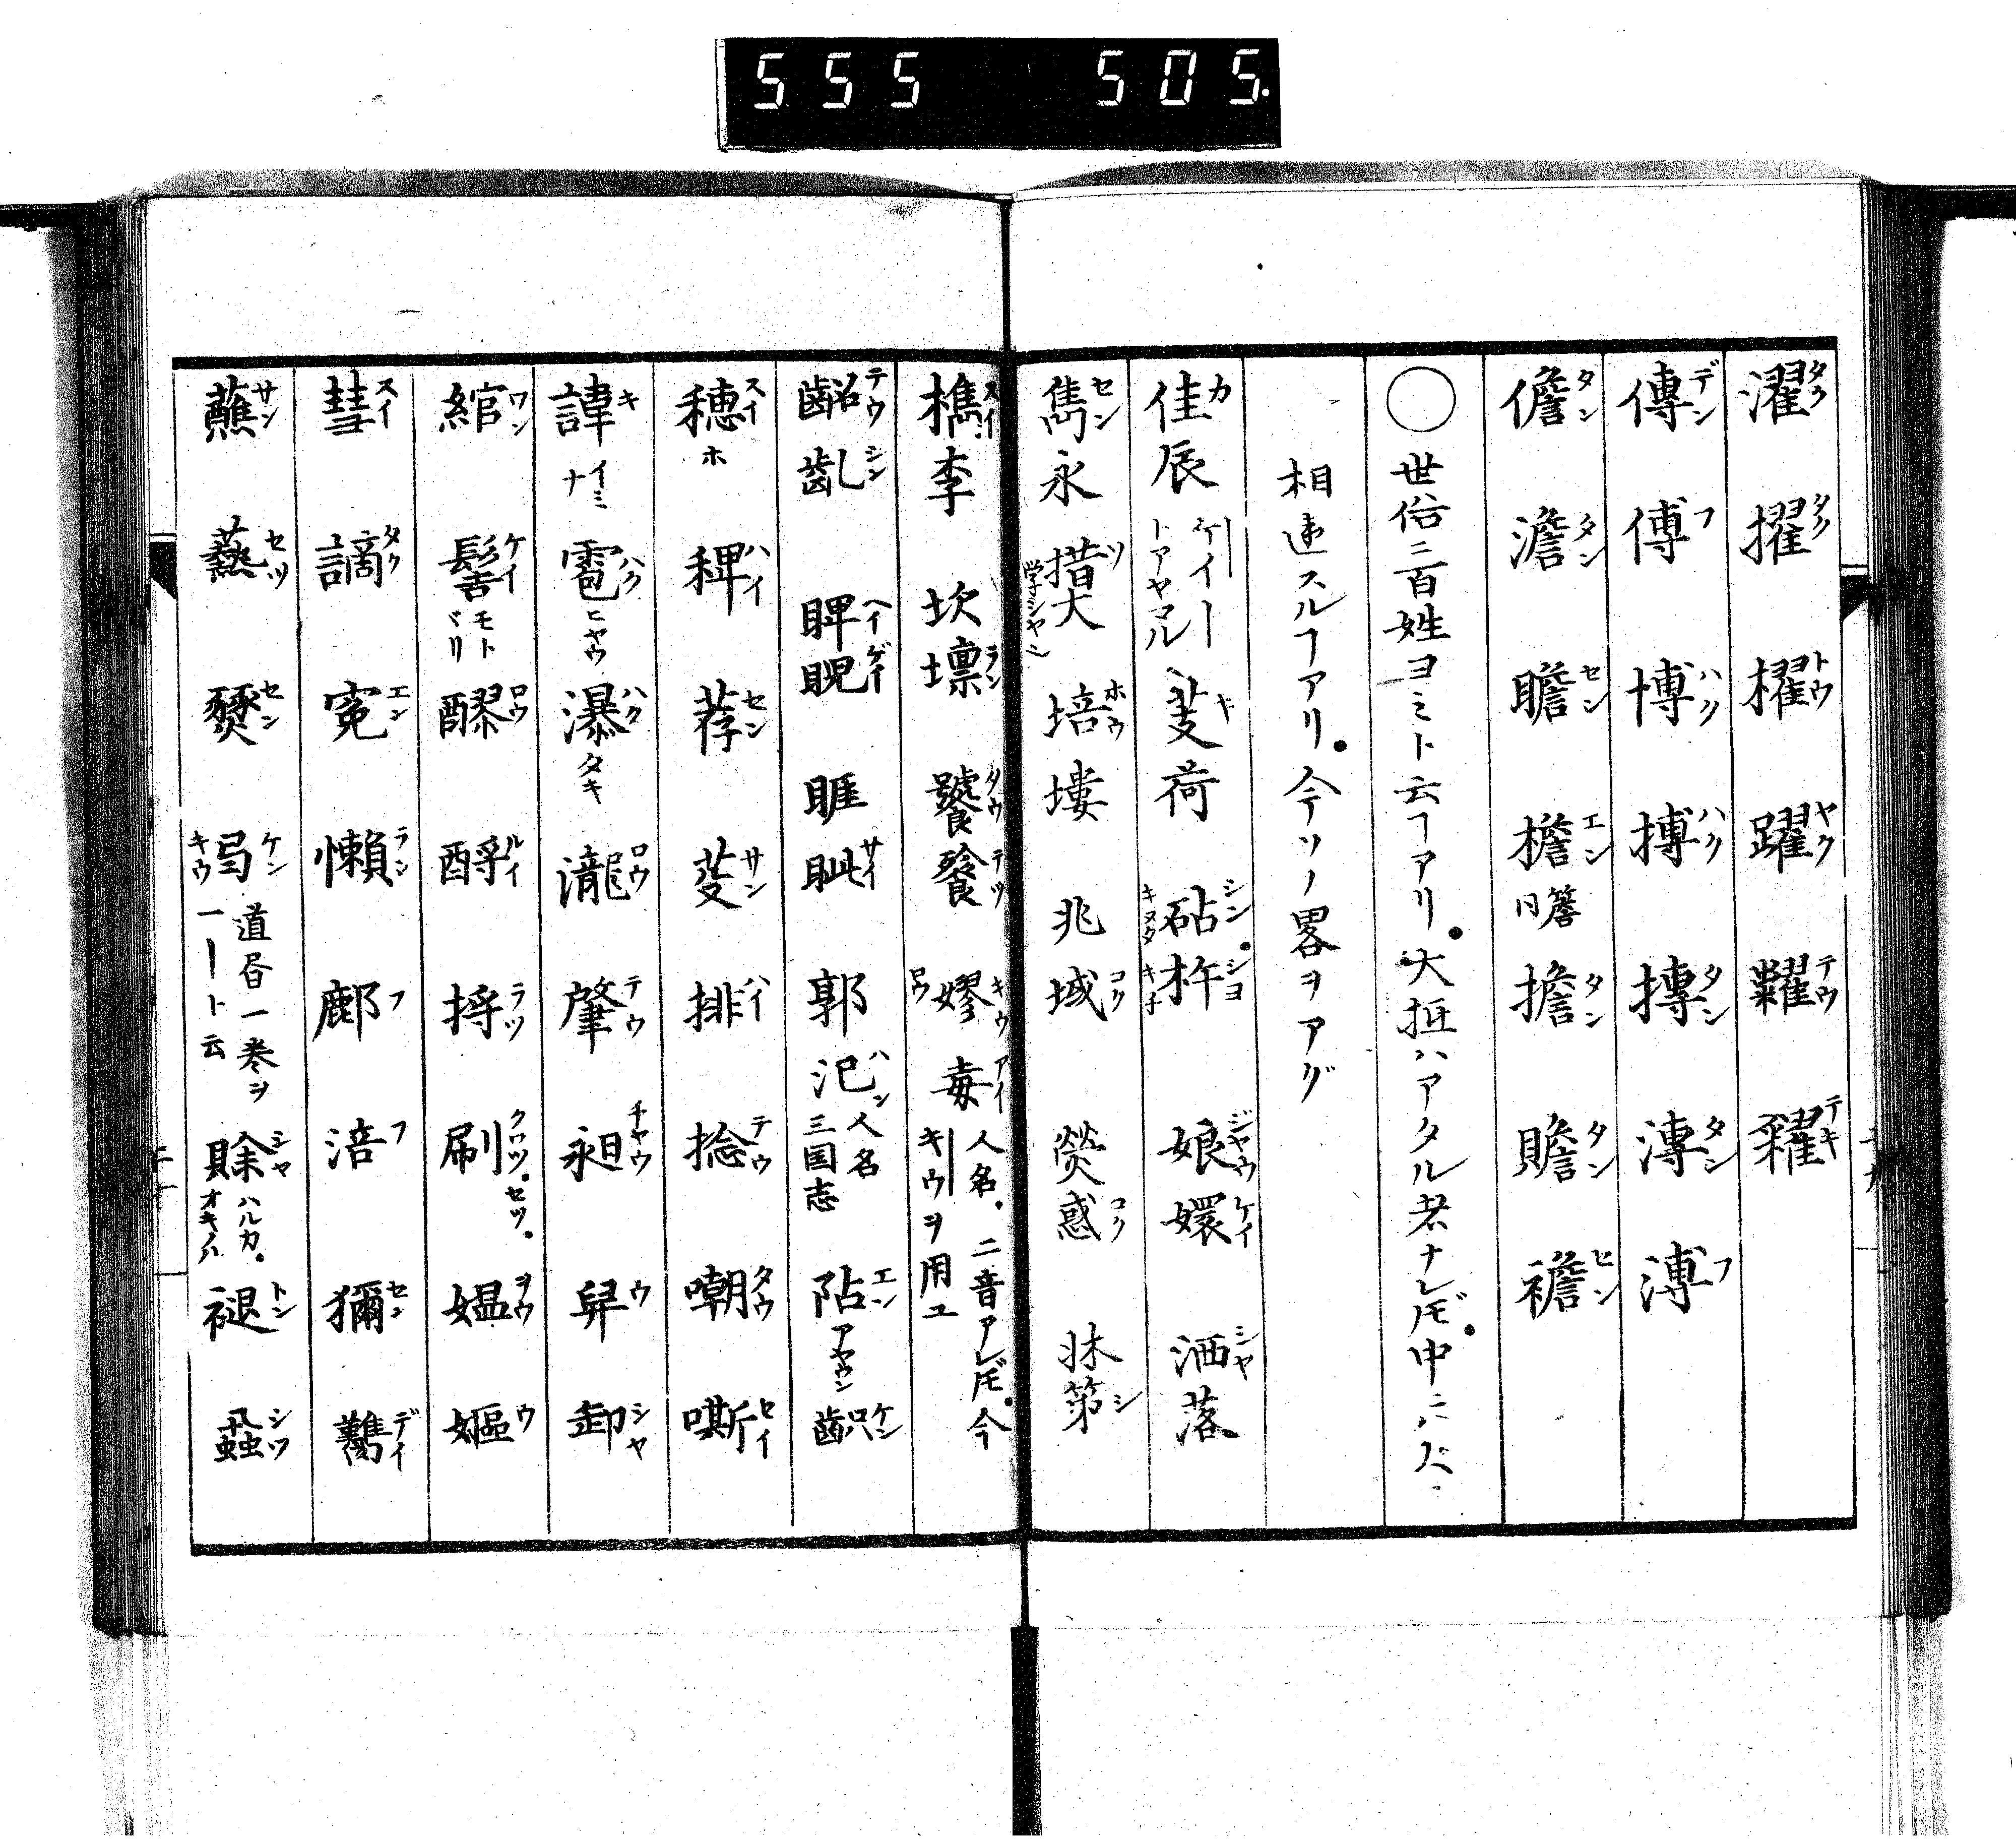 555 505.
濯タク 擢タク 櫂トウ 躍ヤク 糶テウ 糴テキ
傳デン 傅フ 博ハク 搏ハク 摶タン 漙タン 溥フ
儋タン 澹タン 瞻セン 檐エン 簷同 擔タン 贍タン 襜セン
○世俗ニ百姓ヨミト云ヿアリ。大抵ハアタル者ナレ𪜈。中ニハ大ニ
相違スルヿアリ。今ソノ畧ヲアグ
佳カ辰 ケイ―トアヤマル 芰キ荷 砧シン。杵シヨ キヌタ キネ 娘ジヤウ嬛ケイ 洒シヤ落
雋セン永 措ソ大 学シヤ 培ホウ塿 兆域コク 熒惑コク 牀第シ
檇スイ李 坎壈ラン 饕タウ餮テツ 嫪キウ ロウ 毐アイ 人名。二音アレ𪜈。今キウヲ用ユ
齠テウ齓シン 睥ヘイ睨ゲイ 睚眦サイ 郭汜ハン 人名 三国志 阽エン アヤウシ 齞ケン
穂スイ ホ 稗ハイ 荐セン 芟サン 排ハイ 捻テウ 嘲タウ 嘶セイ
諱キ イミナ 雹ハク ヒヤウ 瀑ハク タキ 瀧ロウ 肇テウ 昶チヤウ 舁ウ 卸シヤ
綰ワン 髻ケイ モトヾリ 醪ロウ 酹ルイ 捋ラツ 刷クワツ。セツ。 媼ヲウ 嫗ウ
彗スイ 謫タク 寃エン 懶ラン 鄜フ 涪フ 獮セン 鷈デイ
蘸サン 爇セツ 燹セン 弓ケン キウ 道昏一巻ヲ一―ト云 賖シヤ ハルカ。オキノル 褪トン 蝨シツ